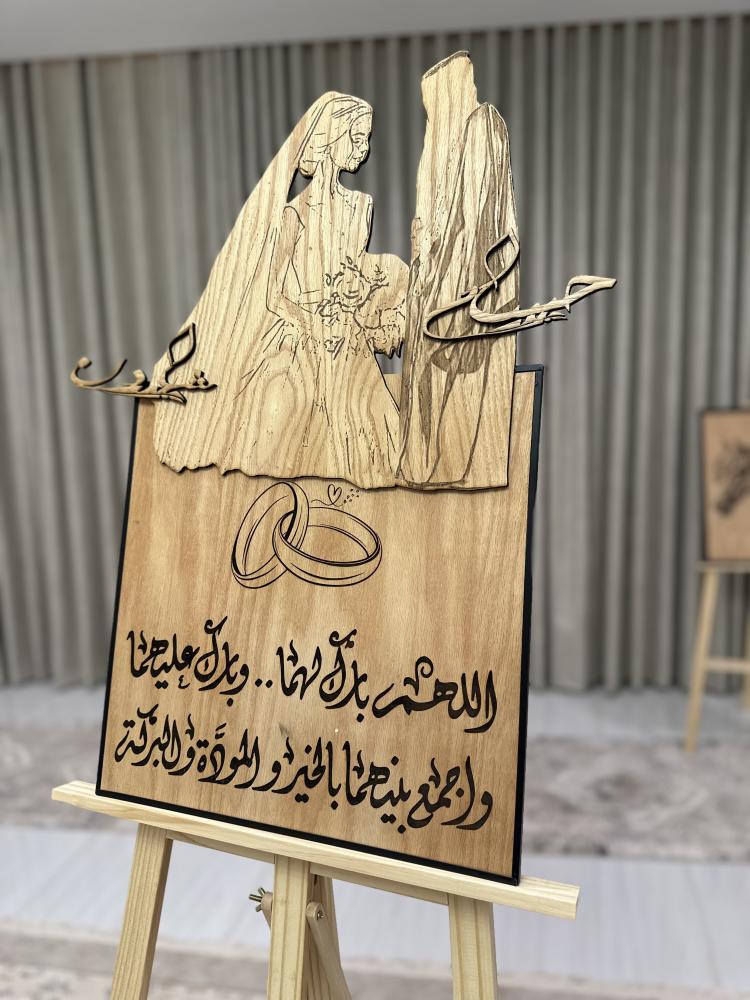 اللهم بارك لهما .. وبارك عليهما
واجمع بينهما بالخير و المودَّة والبركة